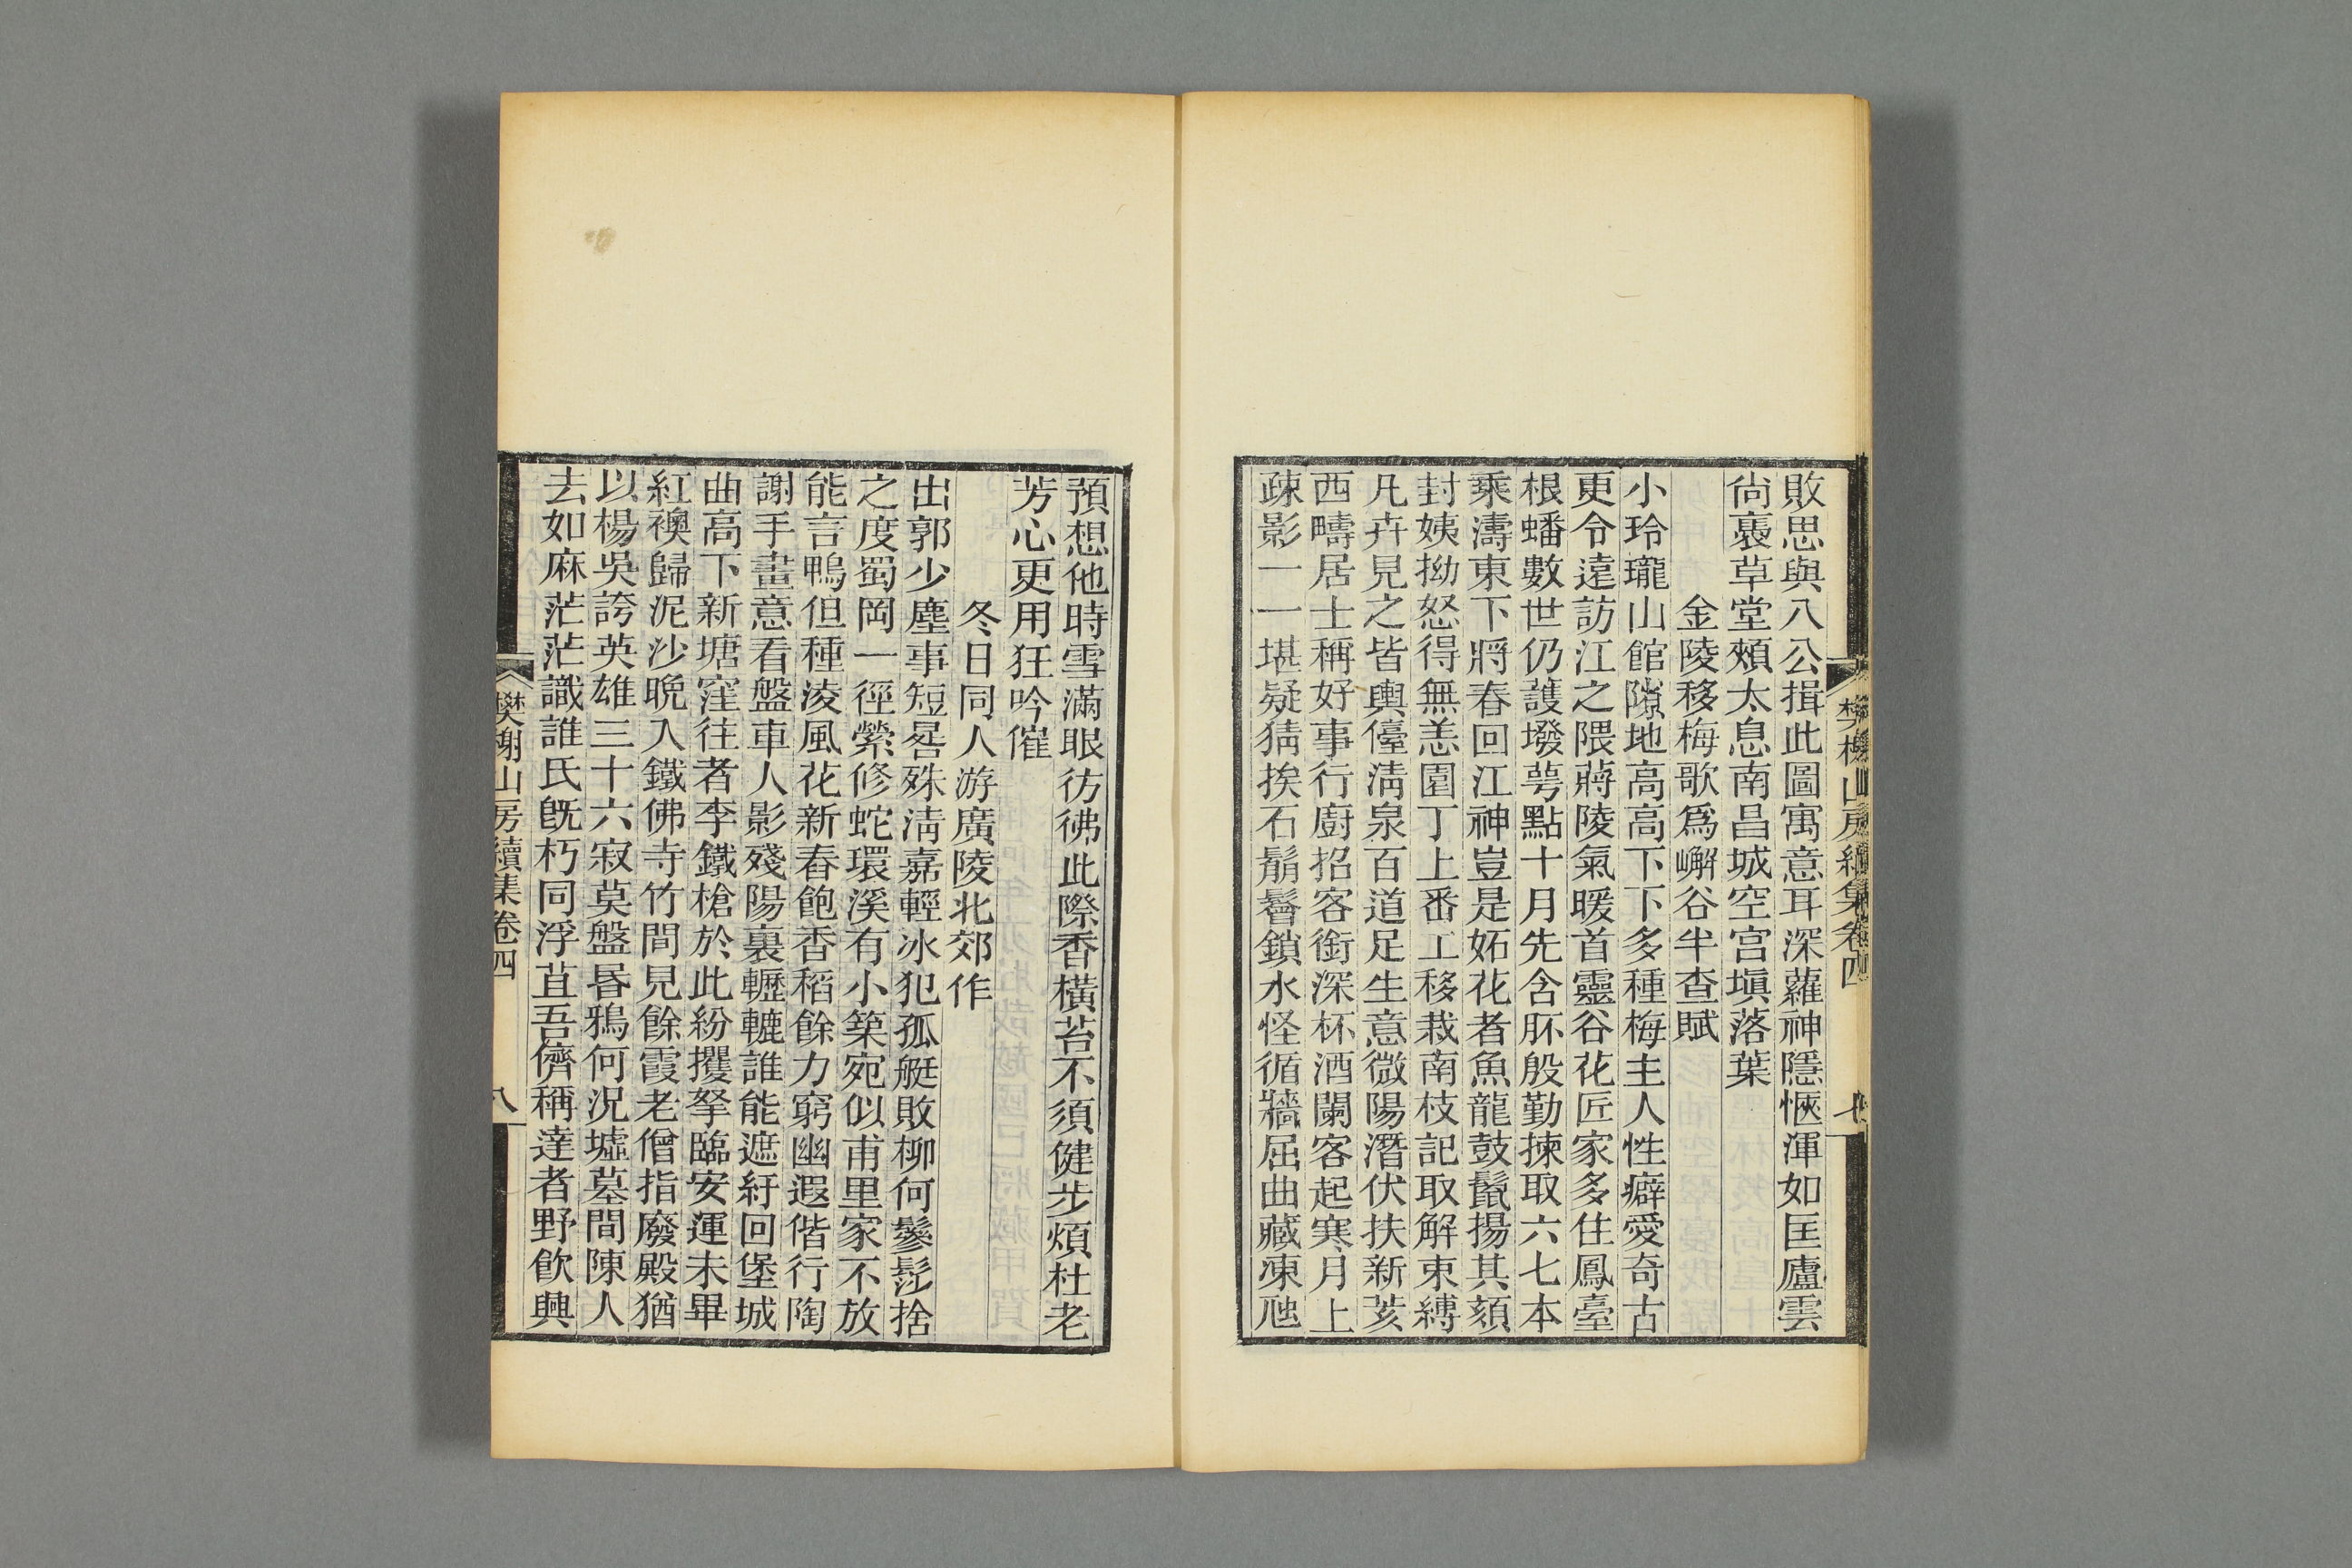 敗思與八公揖此圖寓意耳深蘿神隱愜渾如匡廬雲
尙裛草堂頰太息南昌城空宫塡落葉
金陵移梅歌爲嶰谷半查賦
小玲瓏山館隙地高高下下多種梅主人性癖愛奇古
更令遠訪江之隈蔣陵氣暖首靈谷花匠家多住鳳臺
根蟠數世仍護墢萼點十月先含胚殷勤揀取六七本
乘濤東下將春回江神豈是妬花者魚龍鼓鬛揚其頦
封姨拗怒得無恙園丁上番工移栽南枝記取解束縛
凡卉見之皆輿儓淸泉百道足生意微陽潛伏扶新荄
西疇居士稱好事行廚招客銜深杯酒闌客起寒月上
疎影一一堪疑猜挨石髯鬠鎖水怪循牆屈曲藏凍虺
樊榭山房續集卷四
七
預想他時雪滿眼彷彿此際香橫苔不須健步煩杜老
芳心更用狂吟催
冬日同人游廣陵北郊作
出郭少塵事短晷殊淸嘉輕冰犯孤艇敗柳何鬖髿捨
之度蜀岡一徑縈修蛇環溪有小築宛似甫里家不放
能言鴨但種淩風花新舂飽香稻餘力窮幽遐偕行陶
謝手畫意看盤車人影殘陽裏轣轆誰能遮紆回堡城
曲高下新塘窪往者李鐵槍於此紛攫拏臨安運未畢
紅襖歸泥沙晩入鐵佛寺竹間見餘霞老僧指廢殿猶
以楊吳誇英雄三十六寂莫盤昏鴉何況墟墓間陳人
去如麻茫茫識誰氏旣朽同浮苴吾儕稱達者野飮興
樊榭山房續集卷四
八